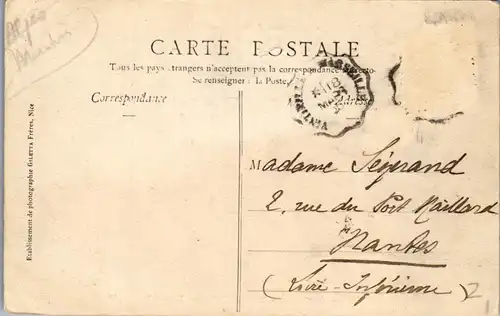 CARTE POSTALE
Tous les pays étrangers n'acceptent pas la correspondance au recto
Se renseigner à la Poste
Correspondance
VINTIMILLE MARSEILLE
Madame Séjurand
2, rue du Port Maillard
Nantes
(Loire-Inférieure)
2
Etablissement de photographie GILETTA Frères, Nice